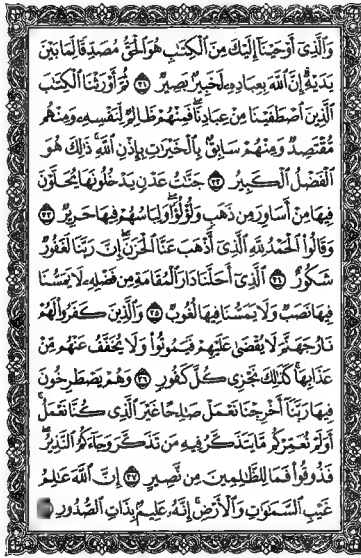 وَالَّذِي أَوْحَيْنَا إِلَيْكَ مِنَ الْكِتَابِ هُوَ الْحَقُّ مُصَدِّقًا لِمَا بَيْنَ
يَدَيْهِ إِنَّ اللَّهَ بِعِبَادِهِ لَخَبِيرٌ بَصِيرٌ ٣١ ثُمَّ أَوْرَثْنَا الْكِتَابَ
الَّذِينَ اصْطَفَيْنَا مِنْ عِبَادِنَا فَمِنْهُمْ ظَالِمٌ لِنَفْسِهِ وَمِنْهُمْ
مُقْتَصِدٌ وَمِنْهُمْ سَابِقٌ بِالْخَيْرَاتِ بِإِذْنِ اللَّهِ ذَٰلِكَ هُوَ
الْفَضْلُ الْكَبِيرُ ٣٢ جَنَّاتُ عَدْنٍ يَدْخُلُونَهَا يُحَلَّوْنَ
فِيهَا مِنْ أَسَاوِرَ مِنْ ذَهَبٍ وَلُؤْلُؤًا وَلِبَاسُهُمْ فِيهَا حَرِيرٌ ٣٣
وَقَالُوا الْحَمْدُ لِلَّهِ الَّذِي أَذْهَبَ عَنَّا الْحَزَنَ إِنَّ رَبَّنَا لَغَفُورٌ
شَكُورٌ ٣٤ الَّذِي أَحَلَّنَا دَارَ الْمُقَامَةِ مِنْ فَضْلِهِ لَا يَمَسُّنَا
فِيهَا نَصَبٌ وَلَا يَمَسُّنَا فِيهَا لُغُوبٌ ٣٥ وَالَّذِينَ كَفَرُوا لَهُمْ
نَارُ جَهَنَّمَ لَا يُقْضَىٰ عَلَيْهِمْ فَيَمُوتُوا وَلَا يُخَفَّفُ عَنْهُمْ مِنْ
عَذَابِهَا كَذَٰلِكَ نَجْزِي كُلَّ كَفُورٍ ٣٦ وَهُمْ يَصْطَرِخُونَ
فِيهَا رَبَّنَا أَخْرِجْنَا نَعْمَلْ صَالِحًا غَيْرَ الَّذِي كُنَّا نَعْمَلُ
أَوَلَمْ نُعَمِّرْكُمْ مَا يَتَذَكَّرُ فِيهِ مَنْ تَذَكَّرَ وَجَاءَكُمُ النَّذِيرُ
فَذُوقُوا فَمَا لِلظَّالِمِينَ مِنْ نَصِيرٍ ٣٧ إِنَّ اللَّهَ عَالِمُ
غَيْبِ السَّمَاوَاتِ وَالْأَرْضِ إِنَّهُ عَلِيمٌ بِذَاتِ الصُّدُورِ